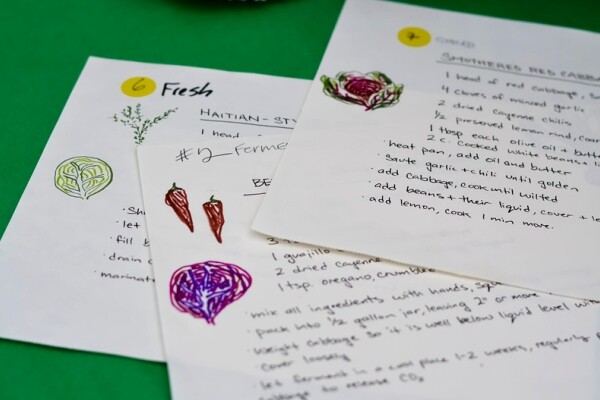 6 Fresh
HAITIAN-STY
1 head
Sh
let
fill
drain
marinat
#2 Ferme
BE
3
1 guajillo
2 dried cayenne
1 tsp. oregano, crumbled
mix all ingredients with hands, squ
pack into 1/2 gallon jar, leaving 2" or more
weight cabbage so it is well below liquid level
cover loosely
let ferment in a cool place 1-2 weeks, regularly
cabbage to release CO2
SMOTHERED RED CABBA
1 head of red cabbage, s
4 cloves of minced garlic
2 dried cayenne chilis
1/2 preserved lemon rind, coar
1 tbsp each olive oil + butte
2 c. cooked white beans + li
heat pan, add oil and butter
sauté garlic + chili until golden
add cabbage, cook until wilted
add beans + their liquid, cover + le
add lemon, cook 1 min more.